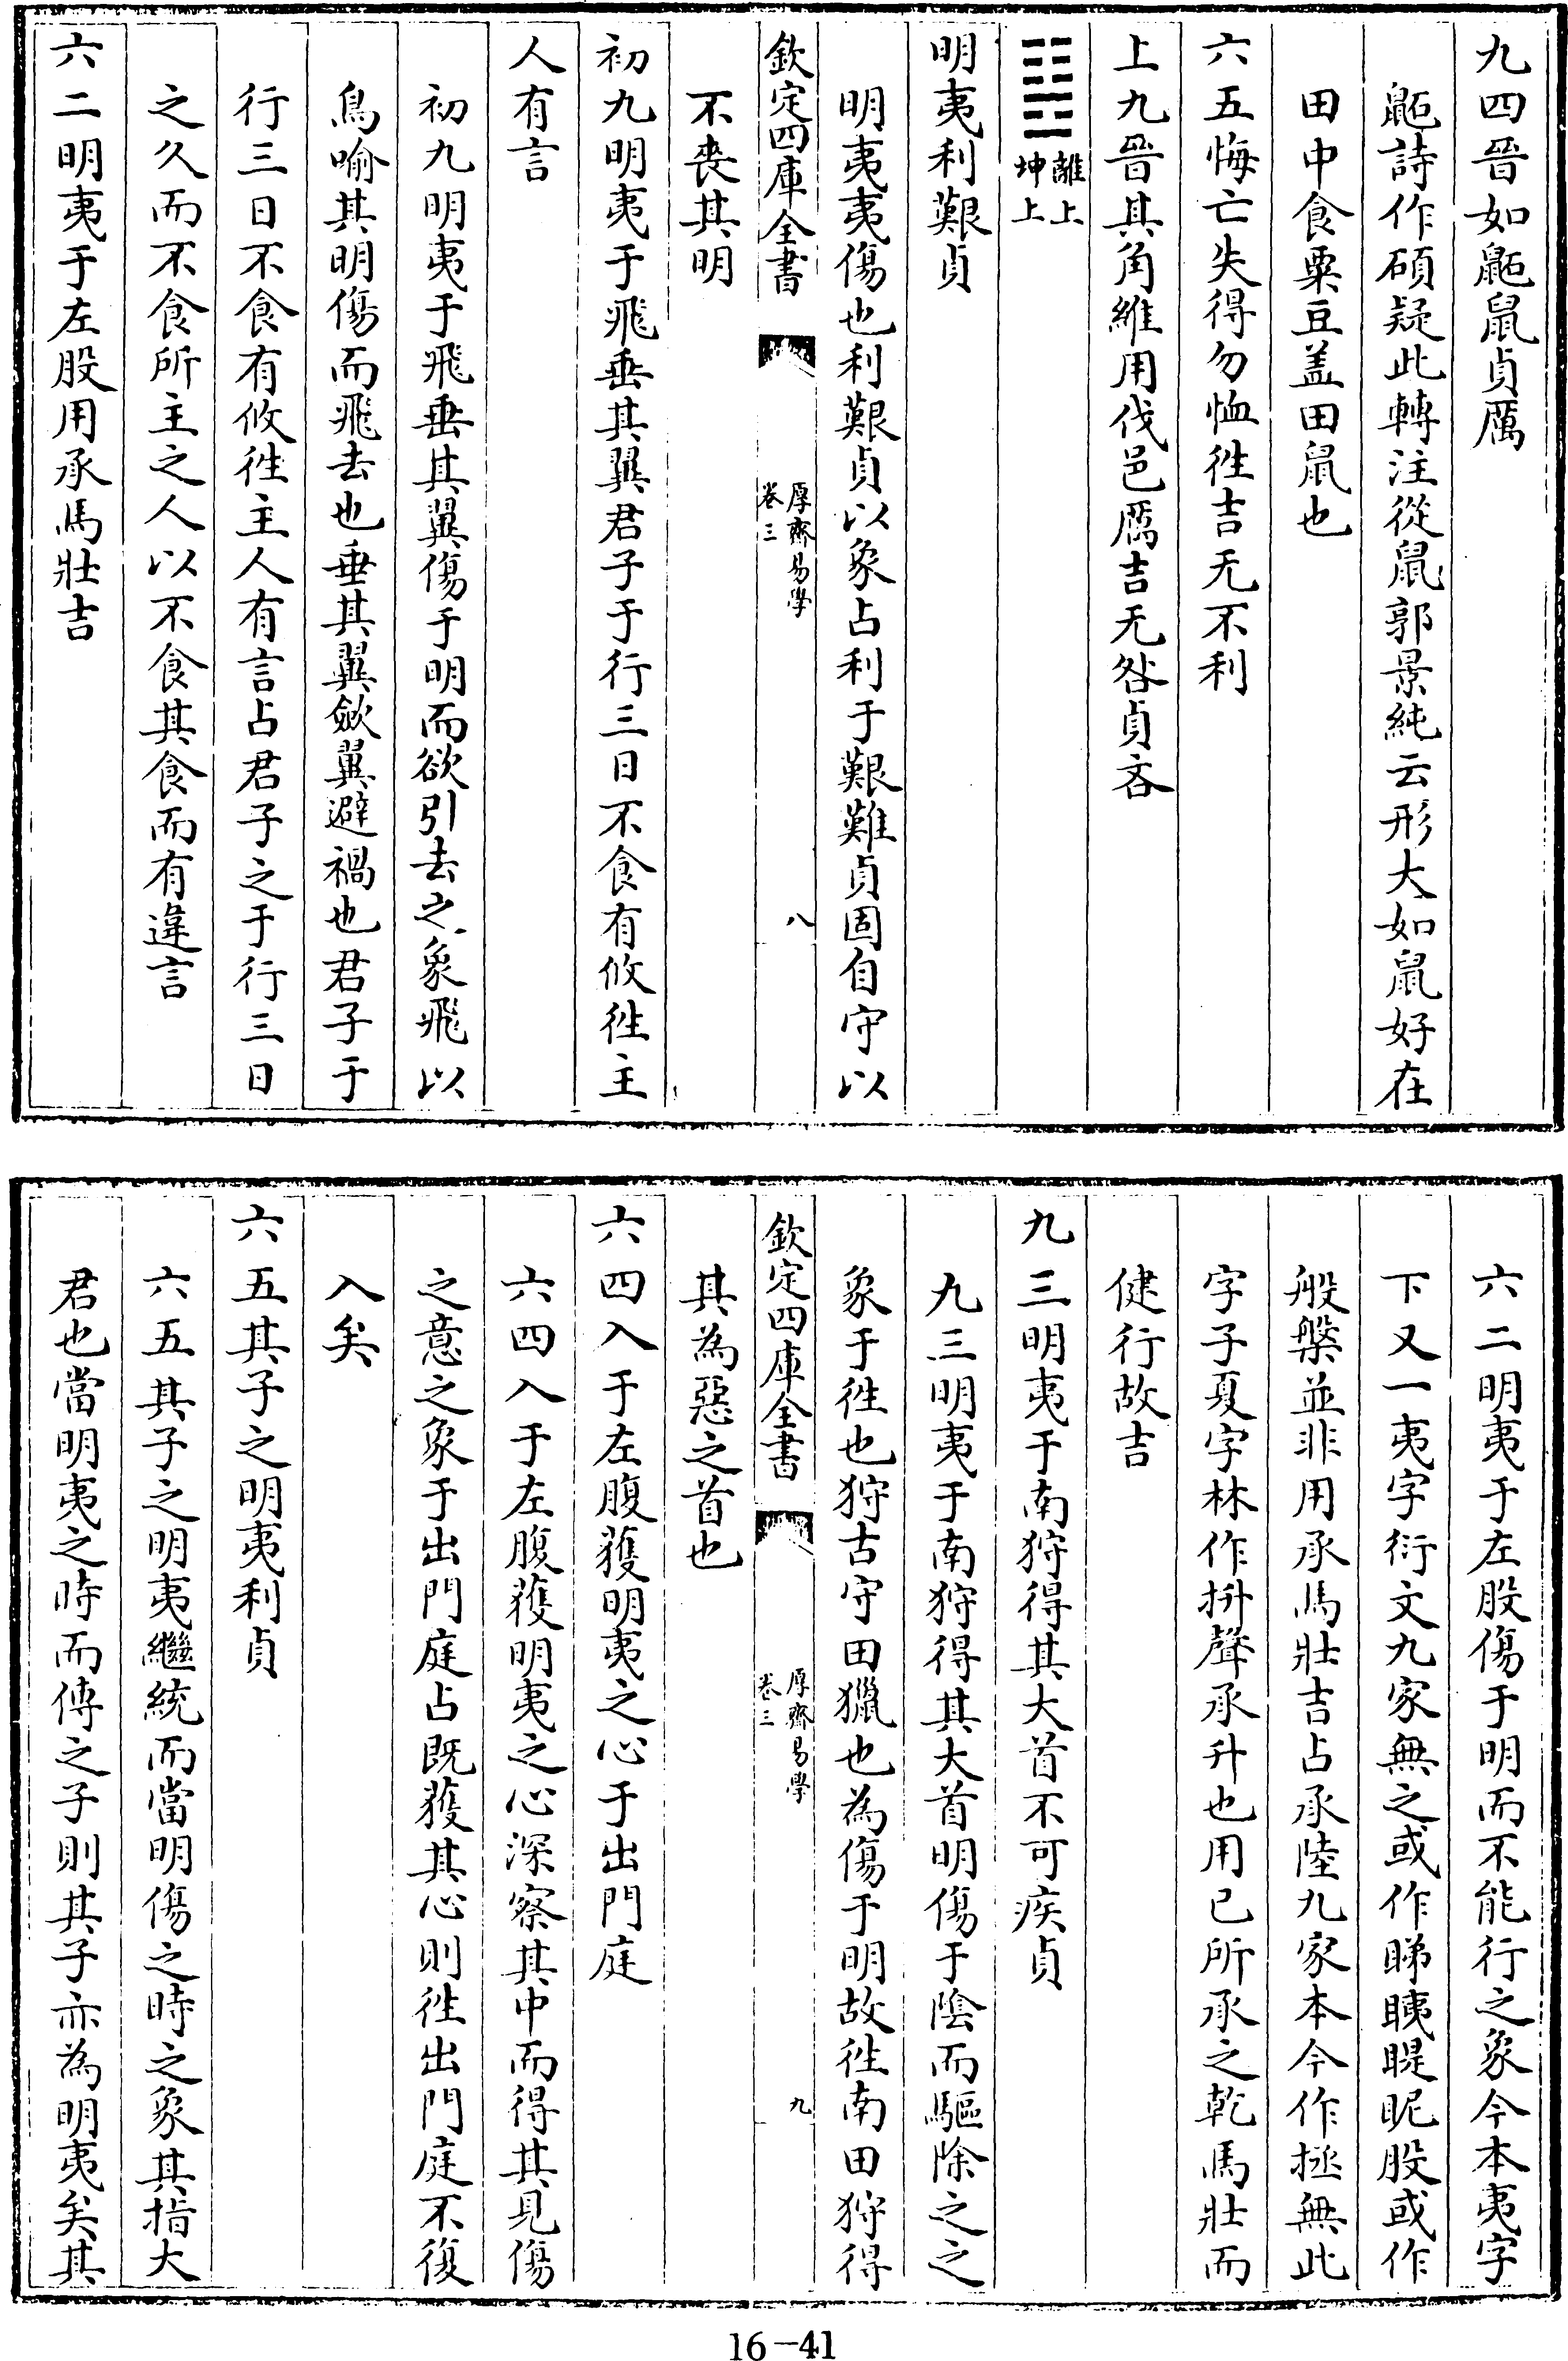 九四晉如鼫鼠貞厲
鼫詩作碩疑此轉注從鼠郭景純云形大如鼠好在
田中食粟豆蓋田鼠也
六五悔亡失得勿恤徃吉无不利
上九晉其角維用伐邑厲吉无咎貞吝
䷣離上坤上
明夷利艱貞
明夷夷傷也利艱貞以象占利于艱難貞固自守以
欽定四庫全書 厚齋易學 卷三 八
不喪其明
初九明夷于飛垂其翼君子于行三日不食有攸徃主
人有言
初九明夷于飛垂其翼傷于明而欲引去之象飛以
鳥喻其明傷而飛去也垂其翼斂翼避禍也君子于
行三日不食有攸徃主人有言占君子之于行三日
之久而不食所主之人以不食其食而有違言
六二明夷于左股用承馬壯吉
六二明夷于左股傷于明而不能行之象今本夷字
下又一夷字衍文九家無之或作睇眱睼眤股或作
般槃並非用承馬壯吉占承陸九家本今作拯無此
字子夏字林作抍聲承升也用已所承之乾馬壯而
健行故吉
九三明夷于南狩得其大首不可疾貞
九三明夷于南狩得其大首明傷于陰而驅除之之
象于徃也狩古守田獵也為傷于明故徃南田狩得
欽定四庫全書 厚齋易學 卷三 九
其為惡之首也
六四入于左腹獲明夷之心于出門庭
六四入于左腹獲明夷之心深察其中而得其見傷
之意之象于出門庭占既獲其心則徃出門庭不復
入矣
六五其子之明夷利貞
六五其子之明夷繼統而當明傷之時之象其指大
君也當明夷之時而傳之子則其子亦為明夷矣其
16-41